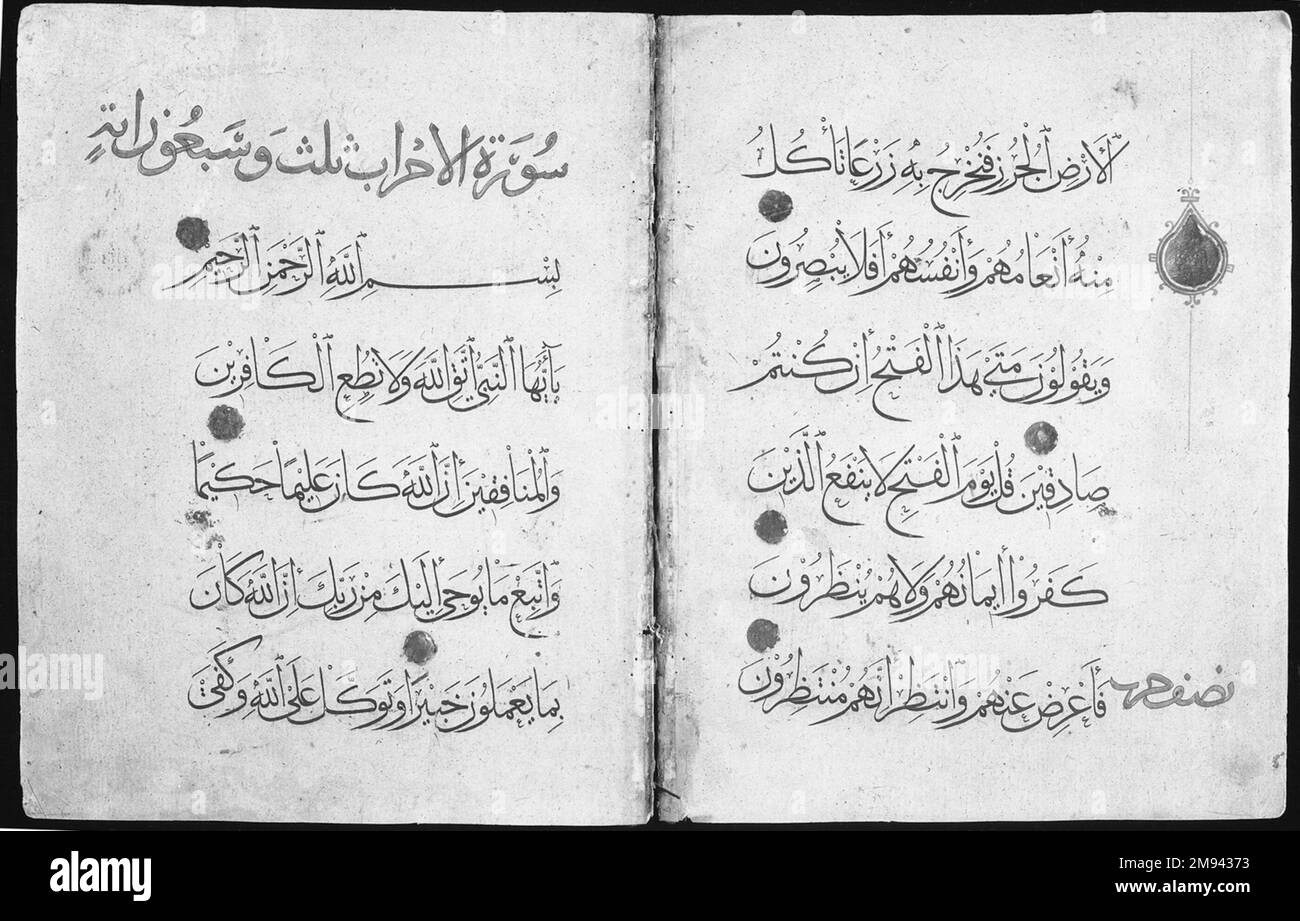 ٱلْأَرْضِ ٱلْجُرُزِ فَنُخْرِجُ بِهِ زَرْعًا تَأْكُلُ
مِنْهُ أَنْعَامُهُمْ وَأَنْفُسُهُمْ أَفَلَا يُبْصِرُونَ
وَيَقُولُونَ مَتَىٰ هَذَا ٱلْفَتْحُ إِنْ كُنْتُمْ
صَادِقِينَ قُلْ يَوْمَ ٱلْفَتْحِ لَا يَنْفَعُ ٱلَّذِينَ
كَفَرُوا إِيمَانُهُمْ وَلَا هُمْ يُنْظَرُونَ
فَأَعْرِضْ عَنْهُمْ وَٱنْتَظِرْ إِنَّهُمْ مُنْتَظِرُونَ
نصف حزب
سُورَةُ الْأَحْزَابِ ثَلَثٌ وَسَبْعُونَ آيَةٍ
بِسْمِ ٱللَّهِ ٱلرَّحْمَنِ ٱلرَّحِيمِ
يَأَيُّهَا ٱلنَّبِيُّ ٱتَّقِ ٱللَّهَ وَلَا تُطِعِ ٱلْكَافِرِينَ
وَٱلْمُنَافِقِينَ إِنَّ ٱللَّهَ كَانَ عَلِيمًا حَكِيمًا
وَٱتَّبِعْ مَا يُوحَىٰ إِلَيْكَ مِنْ رَبِّكَ إِنَّ ٱللَّهَ كَانَ
بِمَا يَعْمَلُونَ خَبِيرًا وَتَوَكَّلْ عَلَى ٱللَّهِ وَكَفَىٰ
alamy
Image ID: 2M94373
www.alamy.com